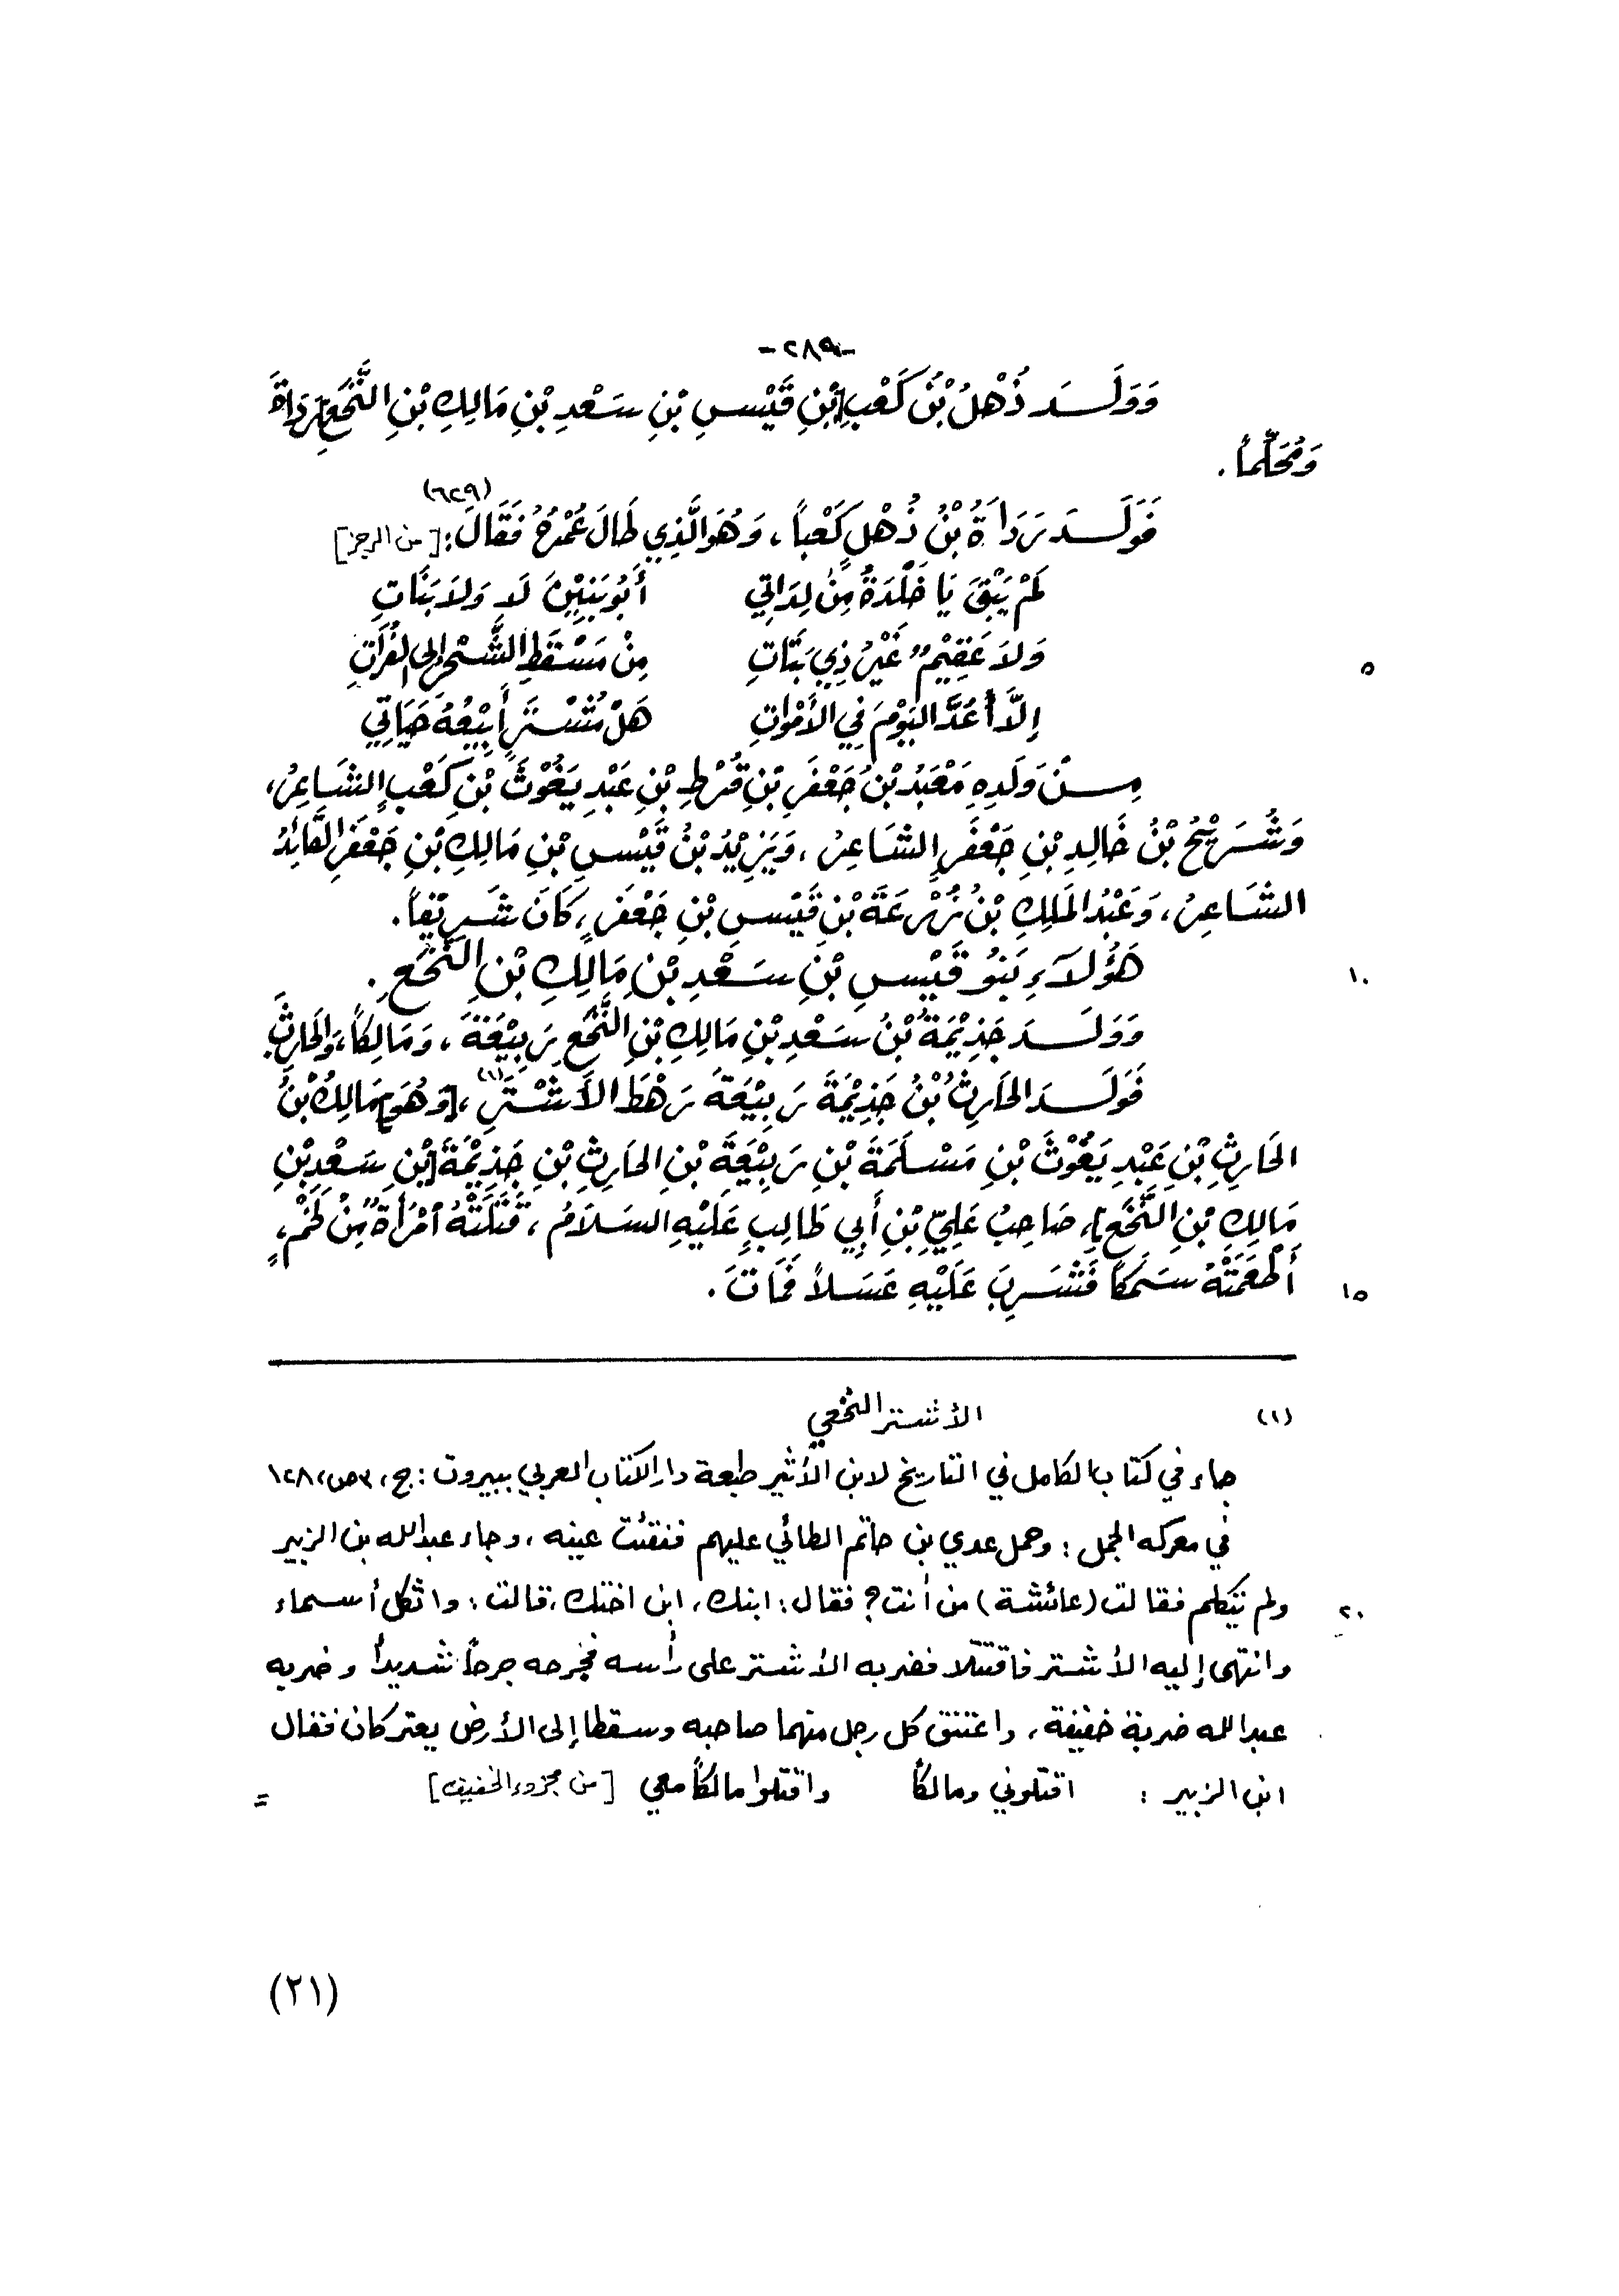 -٢٨٩-
وَوَلَــدَ ذُهْلُ بْنُ كَعْبِ [بْنِ قَيْسِ بْنِ سَعْدِ بْنِ مَالِكِ بْنِ النَّخَعِ] رَدَاةَ
وَمُحَلِّماً .
(٦٢٩)
فَوَلَــدَ رَدَاةُ بْنُ ذُهْلٍ كَعْباً ، وَهُوَ الَّذِي طَالَ عُمْرُهُ فَقَالَ : [من الرجز]
لَمْ يَبْقَ يَا خَلْدَةُ مِنْ لِدَاتِي أَبُو بَنِيْنَ لَا وَلَا بَنَاتِ
٥ وَلَا عَقِيْمٌ غَيْرُ ذِي بَتَاتِ مِنْ مَسْقَطِ الشَّحْرِ إِلى الفُرَاتِ
إِلَّا أُعَدَّ اليَوْمَ فِي الأَمْوَاتِ هَلْ مُشْتَرٍ أَبِيْعُهُ حَيَاتِي
مِــنْ وَلَدِهِ مَعْبَدُ بْنُ جَعْفَرِ بْنِ قُرْطِ بْنِ عَبْدِ يَغُوْثَ بْنِ كَعْبٍ الشَاعِرُ ،
وَشُــرَيْحُ بْنُ خَالِدِ بْنِ جَعْفَرٍ الشَاعِرُ ، وَيَزِيْدُ بْنُ قَيْسِ بْنِ مَالِكِ بْنِ جَعْفَرٍ القَائِدُ
الشَاعِرُ ، وَعَبْدُ المَلِكِ بْنُ زُرْعَةَ بْنِ قَيْسِ بْنِ جَعْفَرٍ ، كَانَ شَرِيْفاً .
١٠ هَؤُلَاءِ بَنُو قَيْسِ بْنِ سَعْدِ بْنِ مَالِكِ بْنِ النَّخَعِ .
وَوَلَــدَ جَذِيْمَةُ بْنُ سَعْدِ بْنِ مَالِكِ بْنِ النَّخَعِ رَبِيْعَةَ ، وَمَالِكاً ، وَالحَارِثَ .
فَوَلَــدَ الحَارِثُ بْنُ جَذِيْمَةَ رَبِيْعَةَ رَهْطَ الأَشْتَرِ (١) ، [وَهُوَ] مَالِكُ بْنُ
الحَارِثِ بْنِ عَبْدِ يَغُوْثَ بْنِ مَسْلَمَةَ بْنِ رَبِيْعَةَ بْنِ الحَارِثِ بْنِ جَذِيْمَةَ [بْنِ سَعْدِ بْنِ
مَالِكِ بْنِ النَّخَعِ] ، صَاحِبُ عَلِيِّ بْنِ أَبِي طَالِبٍ عَلَيْهِ السَلَامُ ، قَتَلَتْهُ امْرَأَةٌ مِنْ لَخْمٍ ،
١٥ أَطْعَمَتْهُ سَمَكاً فَشَرِبَ عَلَيْهِ عَسَلاً فَمَاتَ .
(١) الأشتر النخعي
جاء في كتاب الكامل في التاريخ لابن الأثير طبعة دار الكتاب العربي ببيروت : ج ، ٣ ص ، ١٢٨
في معركه الجمل : وحمل عدي بن حاتم الطائي عليهم ففقئت عينه ، وجاء عبد الله بن الزبير
٢٠ ولم يتكلم فقالت (عائشة) من أنت ؟ فقال : ابنك ، ابن اختك ، قالت : واثكل أسماء
وانتهى إليه الأشتر فاقتتلا فضربه الأشتر على رأسه فجرحه جرحاً شديداً وضربه
عبد الله ضربة خفيفة ، واعتنق كل رجل منهما صاحبه وسقطا إلى الأرض يعتركان فقال
ابن الزبير : اقتلوني ومالكاً واقتلوا مالكاً معي [من مجزوء الخفيف] =
(٢١)